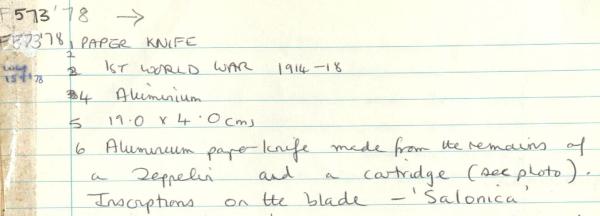 F573'78 →
F573'78 1 PAPER KNIFE
2 1ST WORLD WAR 1914-18
34 Aluminium
5 19.0 x 4.0 cms
6 Aluminium paper-knife made from the remains of
a Zeppelin and a cartridge (see photo).
Inscriptions on the blade - 'Salonica'